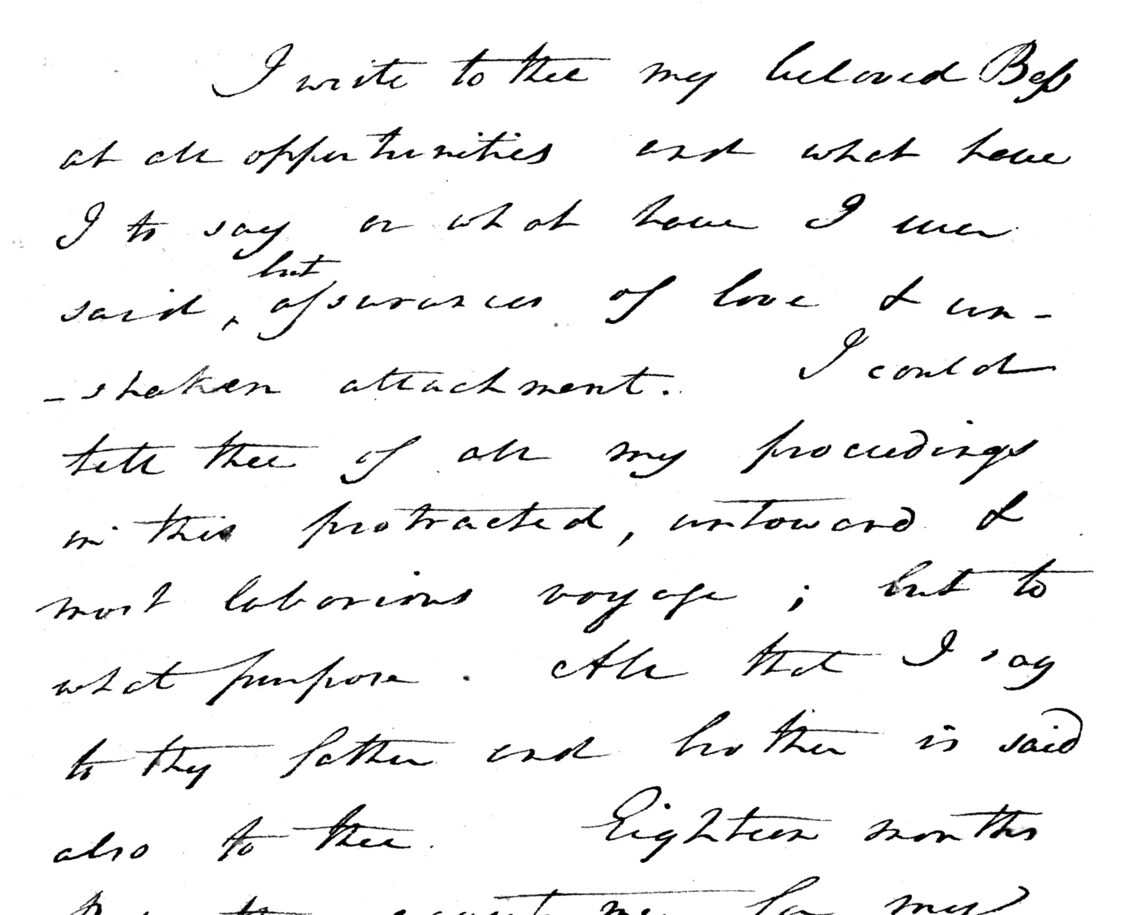 I write to thee my beloved Bess
at all opportunities and what have
I to say or what have I ever
but
said, assurances of love & un-
-shaken attachment. I could
tell thee of all my proceedings
in this protracted, untoward &
most laborious voyage; but to
what purpose. All that I say
to thy father and brother is said
also to thee. Eighteen months
my